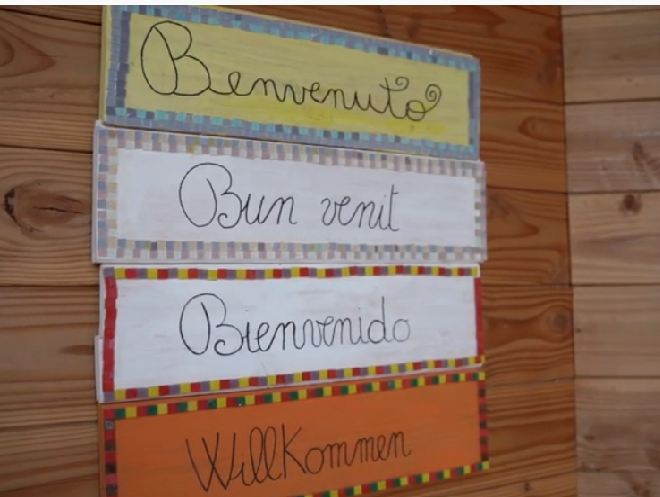 Benvenuto
Bun venit
Bienvenido
Willkommen